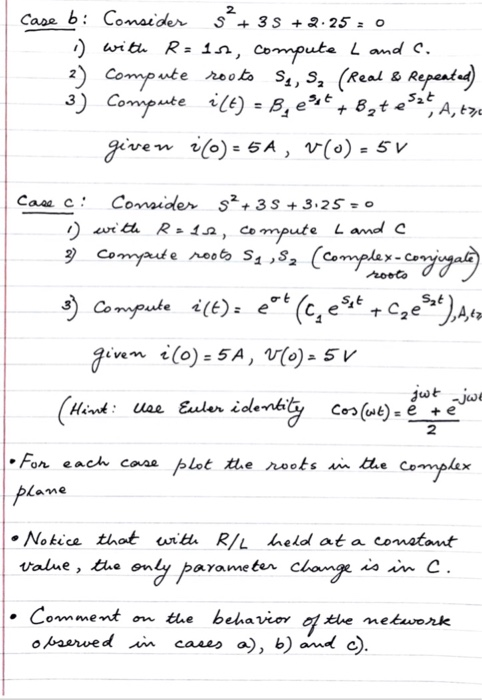 Case b: Consider s² + 3s + 2.25 = 0
1) with R = 1Ω, compute L and C.
2) Compute roots S₁, S₂ (Real & Repeated)
3) Compute i(t) = B₁ e^{s₁t} + B₂ t e^{s₂t}, A, t≥
given i(0) = 5A, v(0) = 5V
Case c: Consider s² + 3s + 3.25 = 0
1) with R = 1Ω, compute L and C
2) Compute roots S₁, S₂ (complex-conjugate) roots
3) Compute i(t) = e^{σt} (C₁ e^{s₁t} + C₂ e^{s₂t}), A, t≥
given i(0) = 5A, v(0) = 5V
(Hint: Use Euler identity Cos(ωt) = e^{jωt} + e^{-jωt} / 2
• For each case plot the roots in the complex
plane
• Notice that with R/L held at a constant
value, the only parameter change is in C.
• Comment on the behavior of the network
observed in cases a), b) and c).